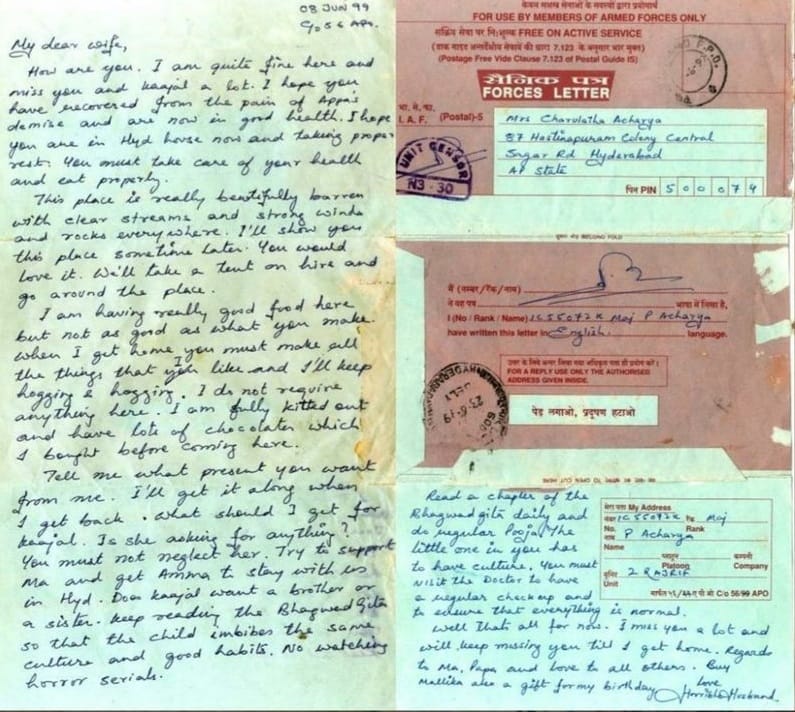 08 JUN 99
C/o 56 APO.
My dear wife,
How are you. I am quite fine here and
miss you and Kaajal a lot. I hope you
have recovered from the pain of Appa's
demise and are now in good health. I hope
you are in Hyd house now and taking proper
rest. You must take care of your health
and eat properly.
This place is really beautifully barren
with clear streams and strong winds
and rocks everywhere. I'll show you
this place sometime later. You would
love it. We'll take a tent on hire and
go around the place.
I am having really good food here
but not as good as what you make.
When I get home you must make all
the things that I like and I'll keep
hogging & hogging. I do not require
anything here. I am fully kitted out
and have lots of chocolates which
I bought before coming here.
Tell me what present you want
from me. I'll get it along when
I get back. What should I get for
Kaajal. Is she asking for anything?
You must not neglect her. Try to support
Ma and get Amma to stay with us
in Hyd. Does Kaajal want a brother or
a sister. Keep reading the Bhagwad Gita
so that the child imbibes the same
culture and good habits. No watching
horror serials.
केवल सशस्त्र सेनाओं के सदस्यों द्वारा प्रयोगार्थ
FOR USE BY MEMBERS OF ARMED FORCES ONLY
सक्रिय सेवा पर नि:शुल्क FREE ON ACTIVE SERVICE
(Postage Free Vide Clause 7.123 of Postal Guide IS)
सैनिक पत्र
FORCES LETTER
I. A. F. (Postal)-5
UNIT CENSOR
N3-30
Mrs Charulatha Acharya
87 Hastinapuram Colony Central
Sagar Rd Hyderabad
AP State
पिन PIN 500079
SECOND FOLD
मैं (नम्बर/रैंक/नाम)
ने यह पत्र भाषा में लिखा है,
I (No / Rank / Name) IC55072K Maj P Acharya
have written this letter in English. language.
FOR A REPLY USE ONLY THE AUTHORISED
ADDRESS GIVEN INSIDE.
पेड़ लगाओ, प्रदूषण हटाओ
TO OPEN CUT HERE
Read a chapter of the
Bhagwad gita daily and
do regular Pooja. The
little one in you has
to have culture. You must
visit the Doctor to have
a regular checkup and
to ensure that everything is normal.
Well thats all for now. I miss you a lot and
will keep missing you till I get home. Regards
to Ma, Papa and love to all others. Buy
Mallika also a gift for my birthday
love
Horrible Husband.
मेरा पता My Address
नंबर IC 55072K रैंक Maj
No. Rank
नाम P Acharya
Name
प्लाटून कंपनी
Platoon Company
यूनिट 2 RAJRIF
Unit
C/o 56/99 APO